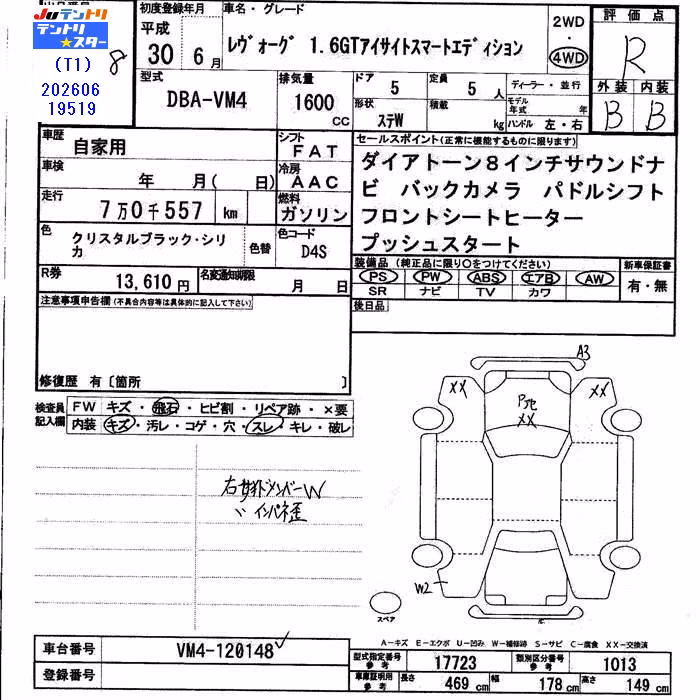 JU テントリ
テントリ★スター
(T1)
202606
19519
8
初度登録年月
平成
30 6 月
車名・グレード
レヴォーグ 1.6GTアイサイトスマートエディション
2WD
・
4WD
評価点
R
外装 内装
B B
型式
DBA-VM4
排気量
1600
CC
ドア
5
定員
5 人
形状
ステW
積載
kg
ディーラー・並行
モデル年式
年
ハンドル 左・右
車歴
自家用
シフト
FAT
車検
年 月( 日)
冷房
AAC
走行
7万0千557 km
燃料
ガソリン
色
クリスタルブラック・シリカ
色替
色コード
D4S
R券
13,610円
名変通知期限
月 日
セールスポイント(正常に機能するものに限ります)
ダイアトーン8インチサウンドナ
ビ バックカメラ パドルシフト
フロントシートヒーター
プッシュスタート
装備品(純正品に限り○をつけてください)
PS PW ABS エアB AW
SR ナビ TV カワ
新車保証書
有・無
後日品
注意事項申告欄(不具合内容等は具体的に記入して下さい)
修復歴 有〔箇所 〕
検査員
記入欄
FW キズ・飛石・ヒビ割・リペア跡・×要
内装 キズ・汚レ・コゲ・穴・スレ・キレ・破レ
右サイドメンバーW
〃 インパネ歪
A3
XX
XX
XX
W2
スペア
A-キズ E-エクボ U-凹み W-補修跡 S-サビ C-腐食 XX-交換済
車台番号
VM4-120148
登録番号
型式指定番号
参考
17723
類別区分番号
参考
1013
車庫証明用
参考
長さ 469 cm
幅 178 cm
高さ 149 cm